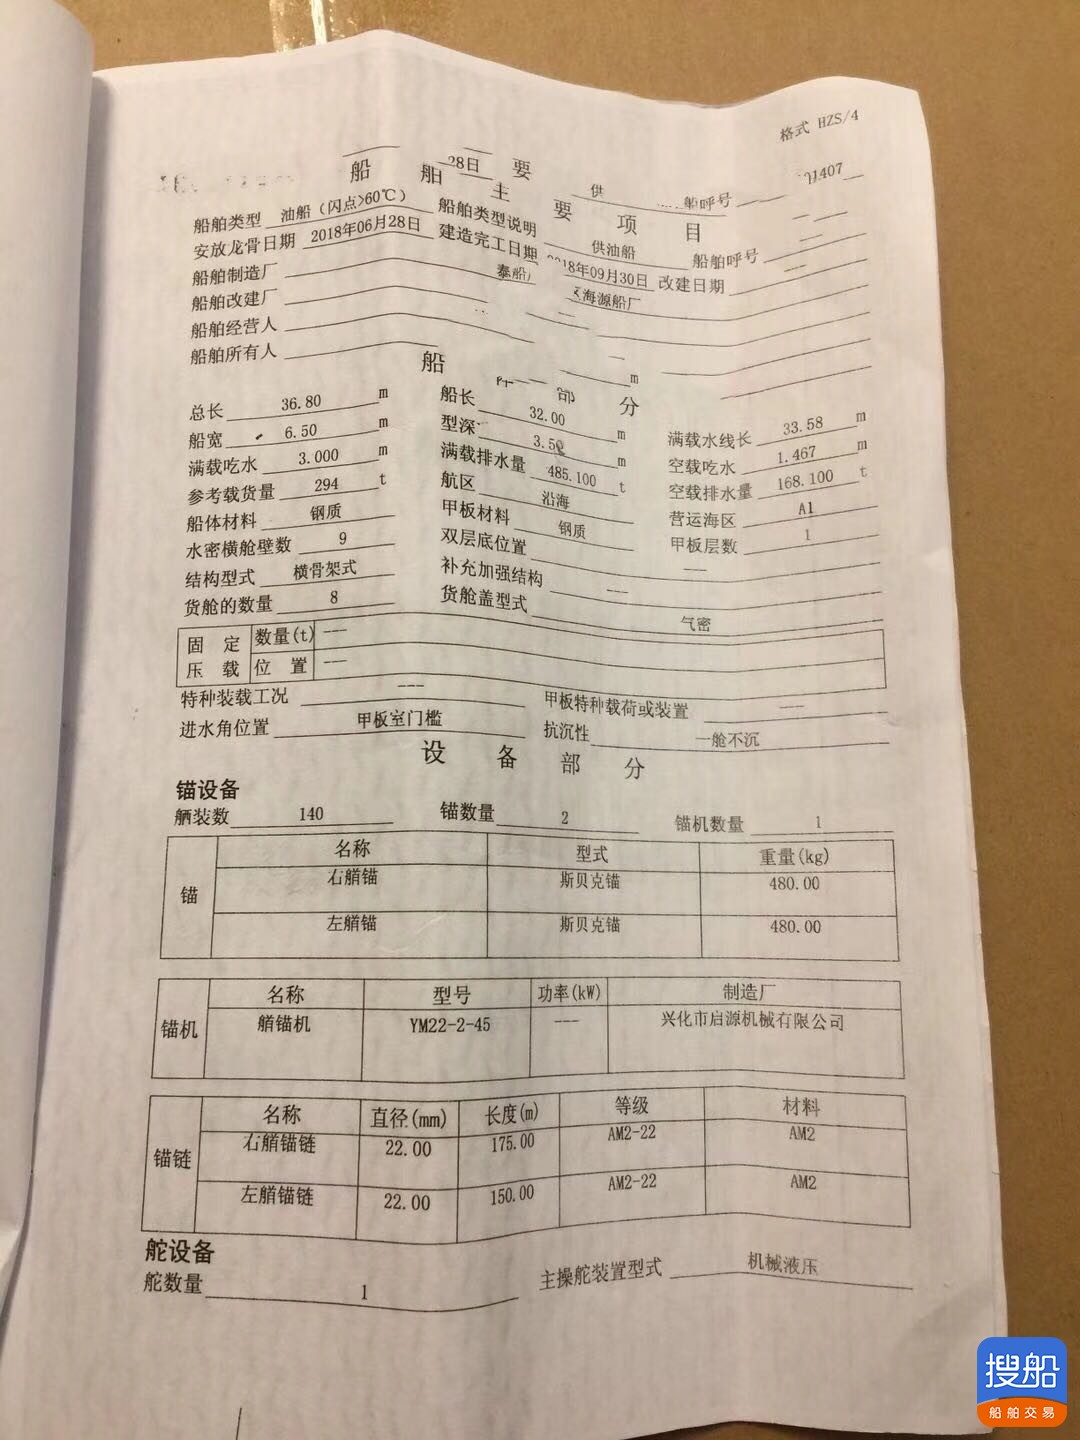 格式 HZS/4
船 舶 主 要 项 目
28日 要 供 船呼号 1407
船舶类型 油船（闪点>60℃） 船舶类型说明 供油船 船舶呼号
安放龙骨日期 2018年06月28日 建造完工日期 18年09月30日 改建日期
船舶制造厂 泰 船厂 区海源船厂
船舶改建厂
船舶经营人
船舶所有人
船 部 分
总长 36.80 m 船长 32.00 m 满载水线长 33.58 m
船宽 6.50 m 型深 3.50 m 空载吃水 1.467 m
满载吃水 3.000 m 满载排水量 485.100 t 空载排水量 168.100 t
参考载货量 294 t 航区 沿海 营运海区 A1
船体材料 钢质 甲板材料 钢质 甲板层数 1
水密横舱壁数 9 双层底位置 ---
结构型式 横骨架式 补充加强结构 ---
货舱的数量 8 货舱盖型式 气密
固 定 数量(t) ---
压 载 位 置 ---
特种装载工况 --- 甲板特种载荷或装置 ---
进水角位置 甲板室门槛 抗沉性 一舱不沉
设 备 部 分
锚设备
舾装数 140 锚数量 2 锚机数量 1
锚 名称 型式 重量(kg)
右艏锚 斯贝克锚 480.00
左艏锚 斯贝克锚 480.00
锚机 名称 型号 功率(kW) 制造厂
艏锚机 YM22-2-45 --- 兴化市启源机械有限公司
锚链 名称 直径(mm) 长度(m) 等级 材料
右艏锚链 22.00 175.00 AM2-22 AM2
左艏锚链 22.00 150.00 AM2-22 AM2
舵设备
舵数量 1 主操舵装置型式 机械液压
搜船
船舶交易